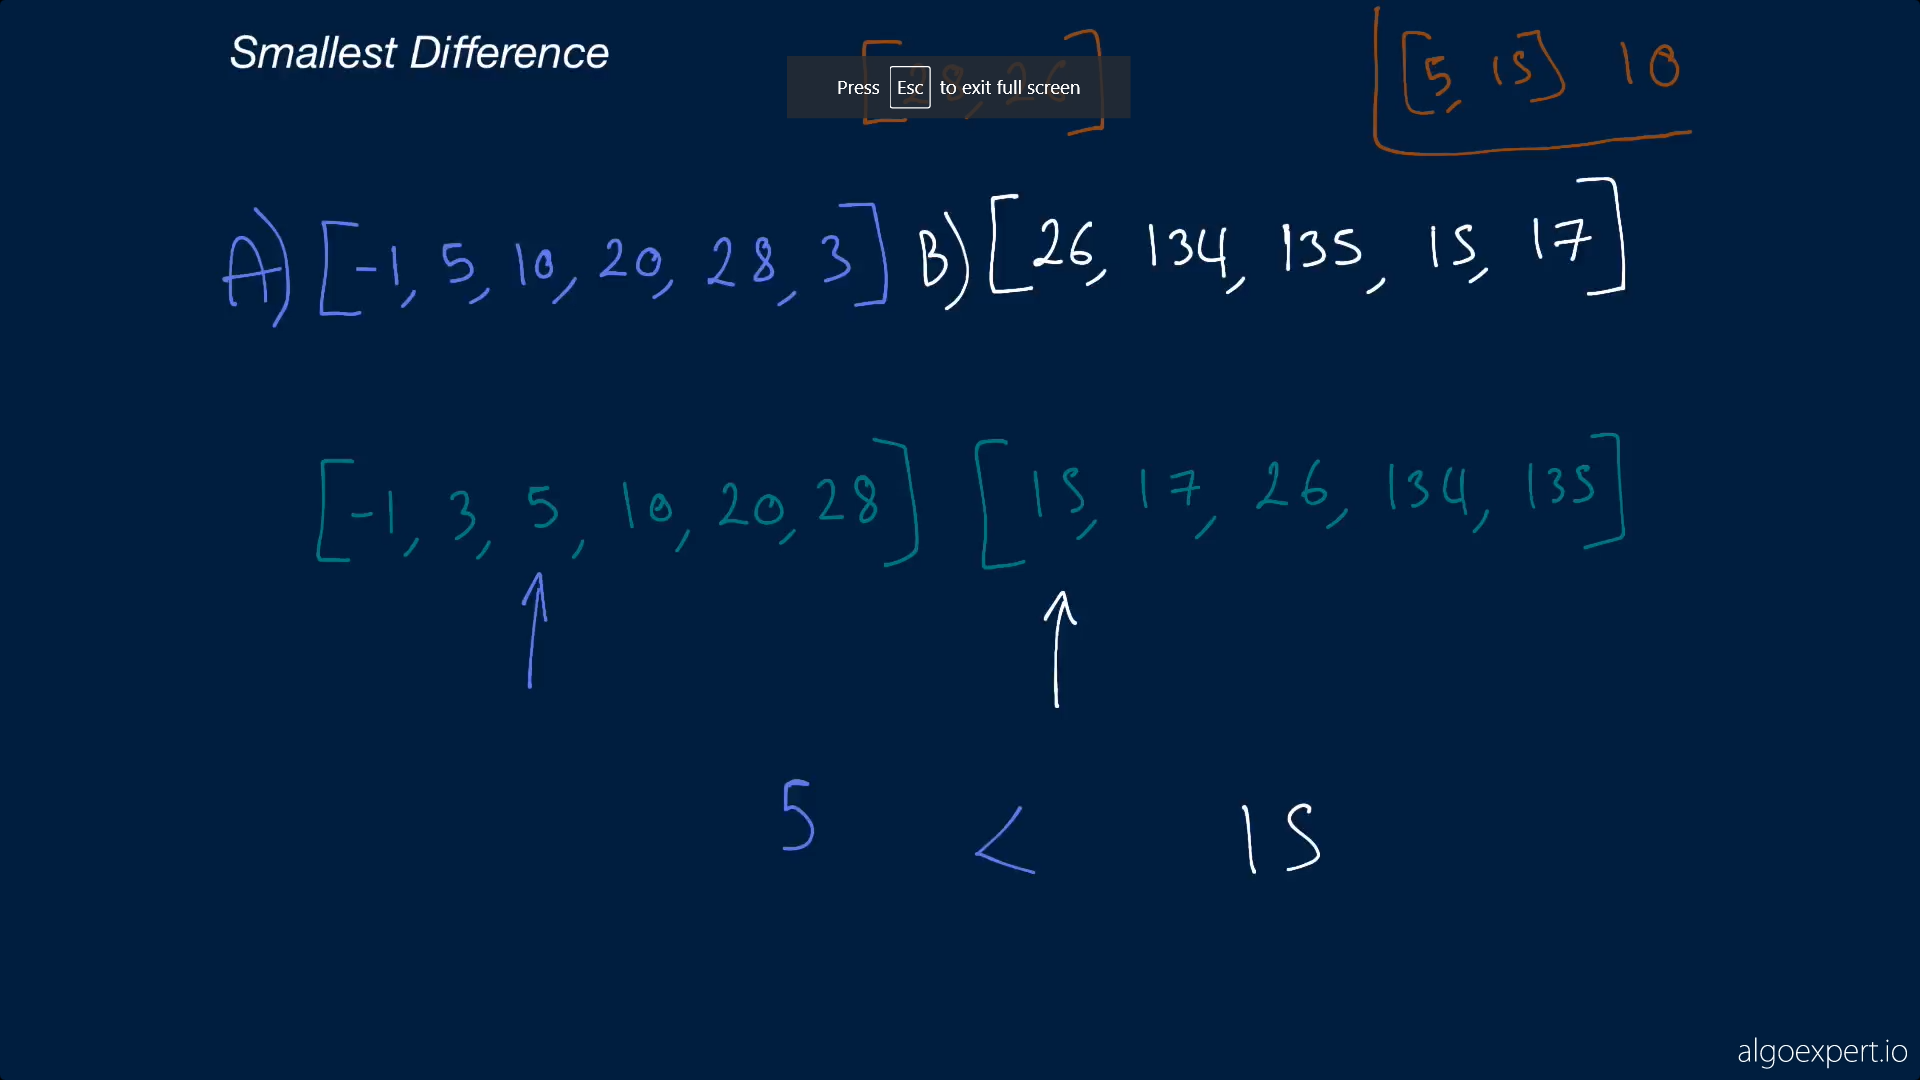 Smallest Difference
[28, 26]
[5, 15] 10
Press Esc to exit full screen
A) [-1, 5, 10, 20, 28, 3] B) [26, 134, 135, 15, 17]
[-1, 3, 5, 10, 20, 28] [15, 17, 26, 134, 135]
5 < 15
algoexpert.io